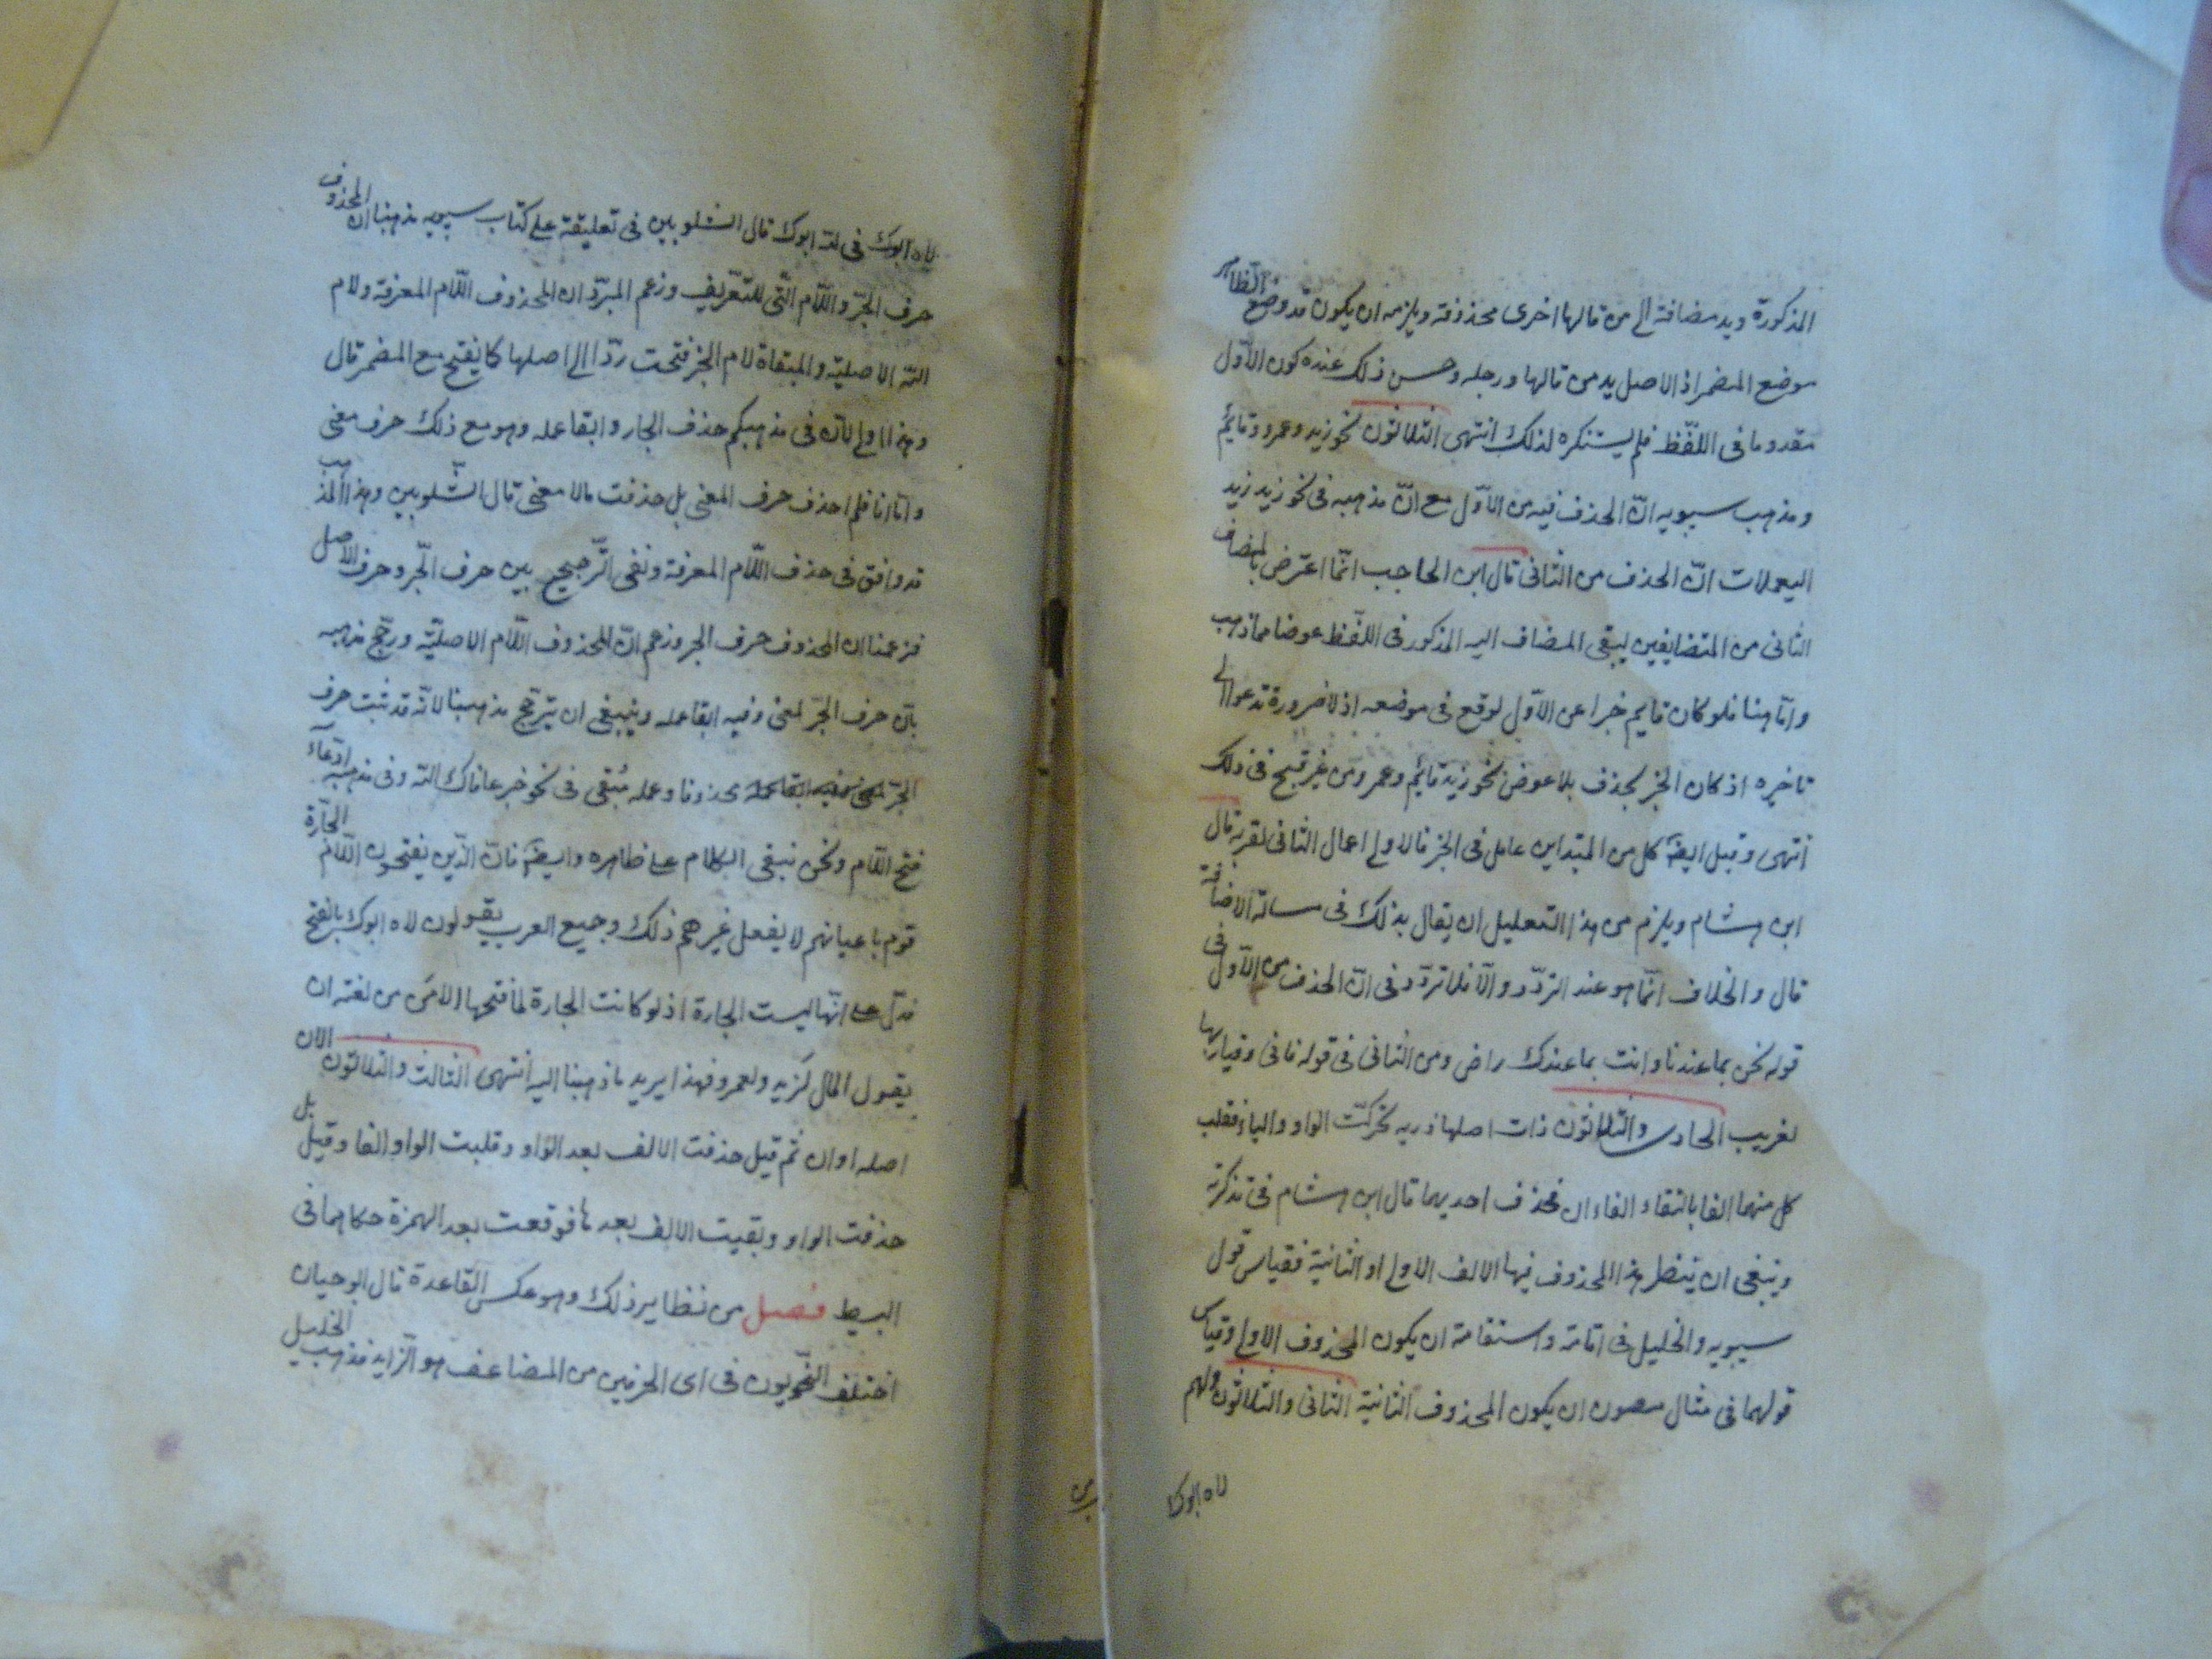 المذكورة ويد مضافة الى من قالها اخرى محذوفة ويلزمه ان يكون قد وضع الظاهر
موضع المضمر اذ الاصل يد من قالها ورجله وحسن ذلك عنده كون الاول
مقدوما فى اللفظ فلم يستنكره لذلك انتهى الثلاثون نحو زيد وعمرو قايم
ومذهب سيبويه انّ الحذف فيه من الاوّل مع انّ مذهبه فى نحو زيد زيد
اليعملات انّ الحذف من الثانى قال ابن الحاجب انّما اعترض بالمضاف
الثانى من المتضايفين ليبقى المضاف اليه المذكور فى اللفظ عوضا مما ذهب
وامّا هنا فلو كان قايم خبرا عن الاوّل لوقع فى موضعه اذ لا ضرورة تدعوا الى
تاخيره اذ كان الخبر يحذف بلا عوض نحو زيد قايم وعمرو من غير قبح فى ذلك
انتهى وقيل ايضً كل من المبتداين عامل فى الخبر فالاولى اعمال الثانى لقربه قال
ابن هشام ويلزم من هذا التعليل ان يقال بذلك فى مسالة الاضافة
قال والخلاف انّما هو عند التردّد والّا فلا تردّد فى انّ الحذف من الاوّل فى
قوله نحن بما عندنا وانت بما عندك راض ومن الثانى فى قوله فانى وقيار بها
لغريب الحادى والثلاثون ذات اصلها ذويه تحركت الواو والياء فقلب
كل منهما الفا بالتقاء الفاءان فحذف احديهما قال ابن هشام فى تذكرته
وينبغى ان ينظر هذا المحذوف فيها الالف الاولى او الثانية فقياس قول
سيبويه والخليل فى اقامة واستقامة ان يكون المحذوف الاولى وقياس
قولهما فى مثال مصون ان يكون المحذوف الثانية الثانى والثلاثون قولهم
لاه ابوك
لاه ابوك فى لله ابوك قال الشلوبين فى تعليقة على كتاب سيبويه مذهبنا ان المحذوف
حرف الجرّ واللّام الّتى للتعريف وزعم المبرّد ان المحذوف اللّام المعرفة ولام
اللّه الاصليّة والمبقاة لام الجرّ فتحت ردّا الى اصلها كما يفتح مع المضمر قال
وهذا اولى لانّه فى مذهبكم حذف الجار وابقا عمله وهو مع ذلك حرف معنى
وامّا انا فلم احذف حرف المعنى بل حذفت مالا معنى قال الشّلوبين وهذا المذهب
قد وافق فى حذف اللّام المعرفة ونفى التّرجيح بين حرف الجّر وحرف الاصل
فزعمنا ان المحذوف حرف الجر وزعم انّ المحذوف اللّام الاصليّة ورجّح مذهبه
بانّ حرف الجرّ لمعنى وفيه ابقا عمله وينبغى ان يترجّح مذهبنا لانّه قد ثبت حرف
الجرّ لمعنى وفيه ابقا عمله محذوفا وعمله مُبقى فى نحو خير عافاك اللّه وفى مذهبه ادّعاء
فتح اللّام ونحن نبقى الكلام على ظاهره وايضً فانّ الّذين يفتحون اللّام الجارّة
قوم باعيانهم لا يفعل غيرهم ذلك وجميع العرب يقولون لاه ابوك بالفتح
فدلّ على انّها ليست الجارة اذ لو كانت الجارة لما فتحها الا من من لغته ان
يقول المال لَزيد ولَعمرو فهذا يريد ما ذهبنا اليه انتهى الثالث والثلاثون الان
اصله اوان ثم قيل حذفت الالف بعد الواو وقلبت الواو الفا وقيل بل
حذفت الواو وبقيت الالف بعدها فوقعت بعد الهمزة حكاهما فى
البسيط فصل من نظاير ذلك وهو عكس القاعدة قال ابو حيان
اختلف النّحويون فى اى الحرفين من المضاعف هو الزّايد فذهب الخليل